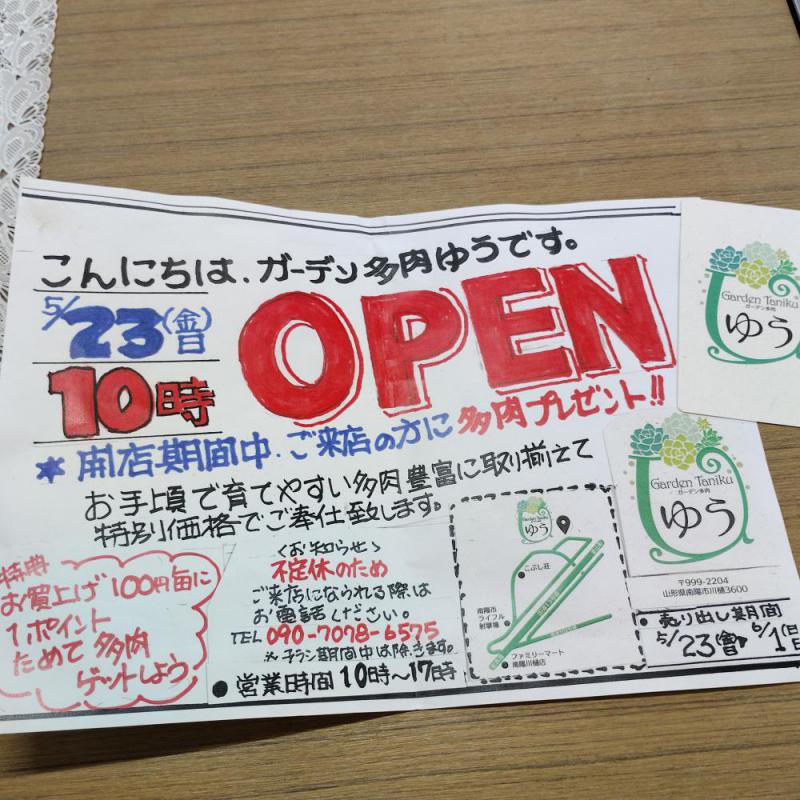 こんにちは、ガーデン多肉ゆうです。
5/23(金)
10時
OPEN
＊開店期間中、ご来店の方に多肉プレゼント!!
お手頃で育てやすい多肉豊富に取り揃えて
特別価格でご奉仕致します。
特典
お買上げ100円毎に
1.ポイント
ためて多肉
ゲットしよう
〈お知らせ〉
不定休のため
ご来店になられる際は
お電話ください。
TEL 090-7078-6575
＊チラシ期間中は除きます。
●営業時間10時〜17時
Garden Taniku
ゆう
こぶし荘
南陽市
ライフル
射撃場
ファミリーマート
南陽川樋店
Garden Taniku
ガーデン多肉
ゆう
Garden Taniku
ガーデン多肉
ゆう
〒999-2204
山形県南陽市川樋3600
●売り出し期間
5/23(金) 6/1(日)